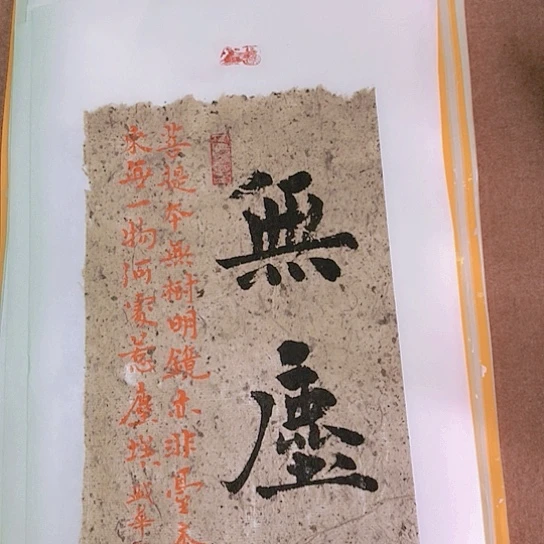 無塵
菩提本無樹明鏡亦非臺本
來無一物何處惹塵埃